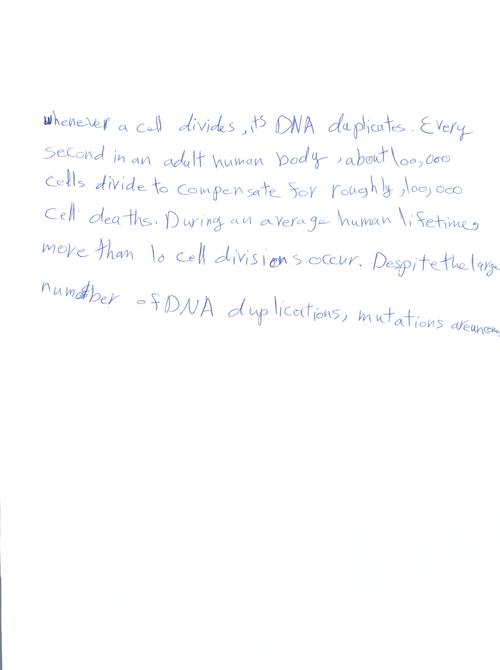 whenever a cell divides, its DNA duplicates. Every
second in an adult human body, about 100,000
cells divide to compensate for roughly, 100,000
cell deaths. During an average human lifetime,
more than 10 cell divisions occur. Despite the large
number of DNA duplications, mutations are